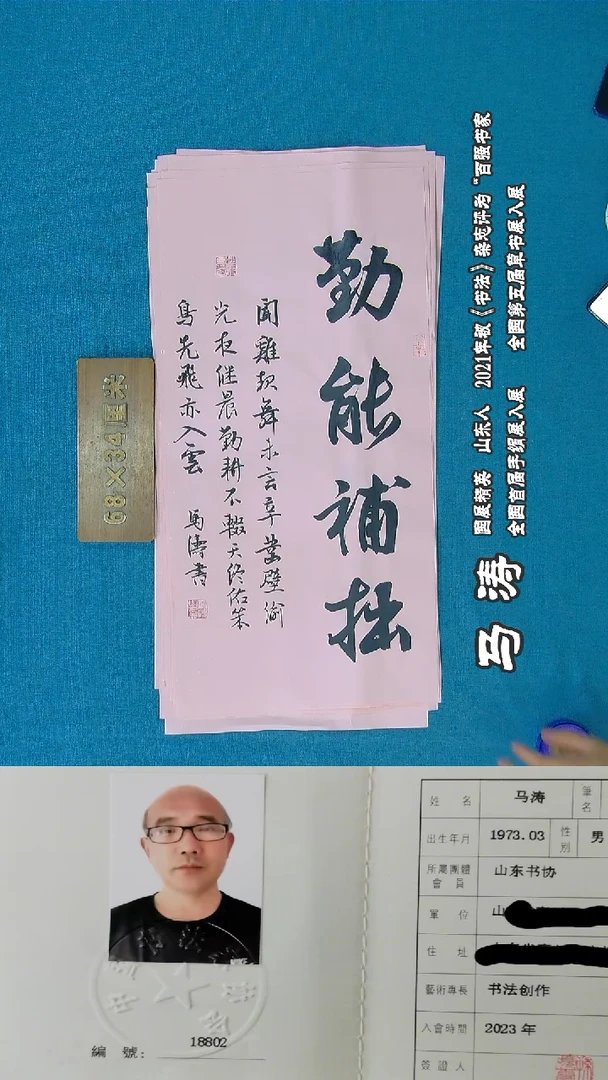 勤能補拙
聞雞起舞未言辛鑿壁偷
光夜继晨勤耕不輟天终佑笨
鳥先飛亦入雲 馬濤書
68X34厘米
马涛
国展精英 山东人 2021年被《书法》杂志评为“百强书家
全国首届手绢展入展 全国第五届草书展入展
編 號: 18802
姓 名 马涛 筆名
出生年月 1973.03 性別 男
所屬團體會員 山东书协
單 位 山
住 址
藝術專長 书法创作
入會時間 2023 年
簽證人